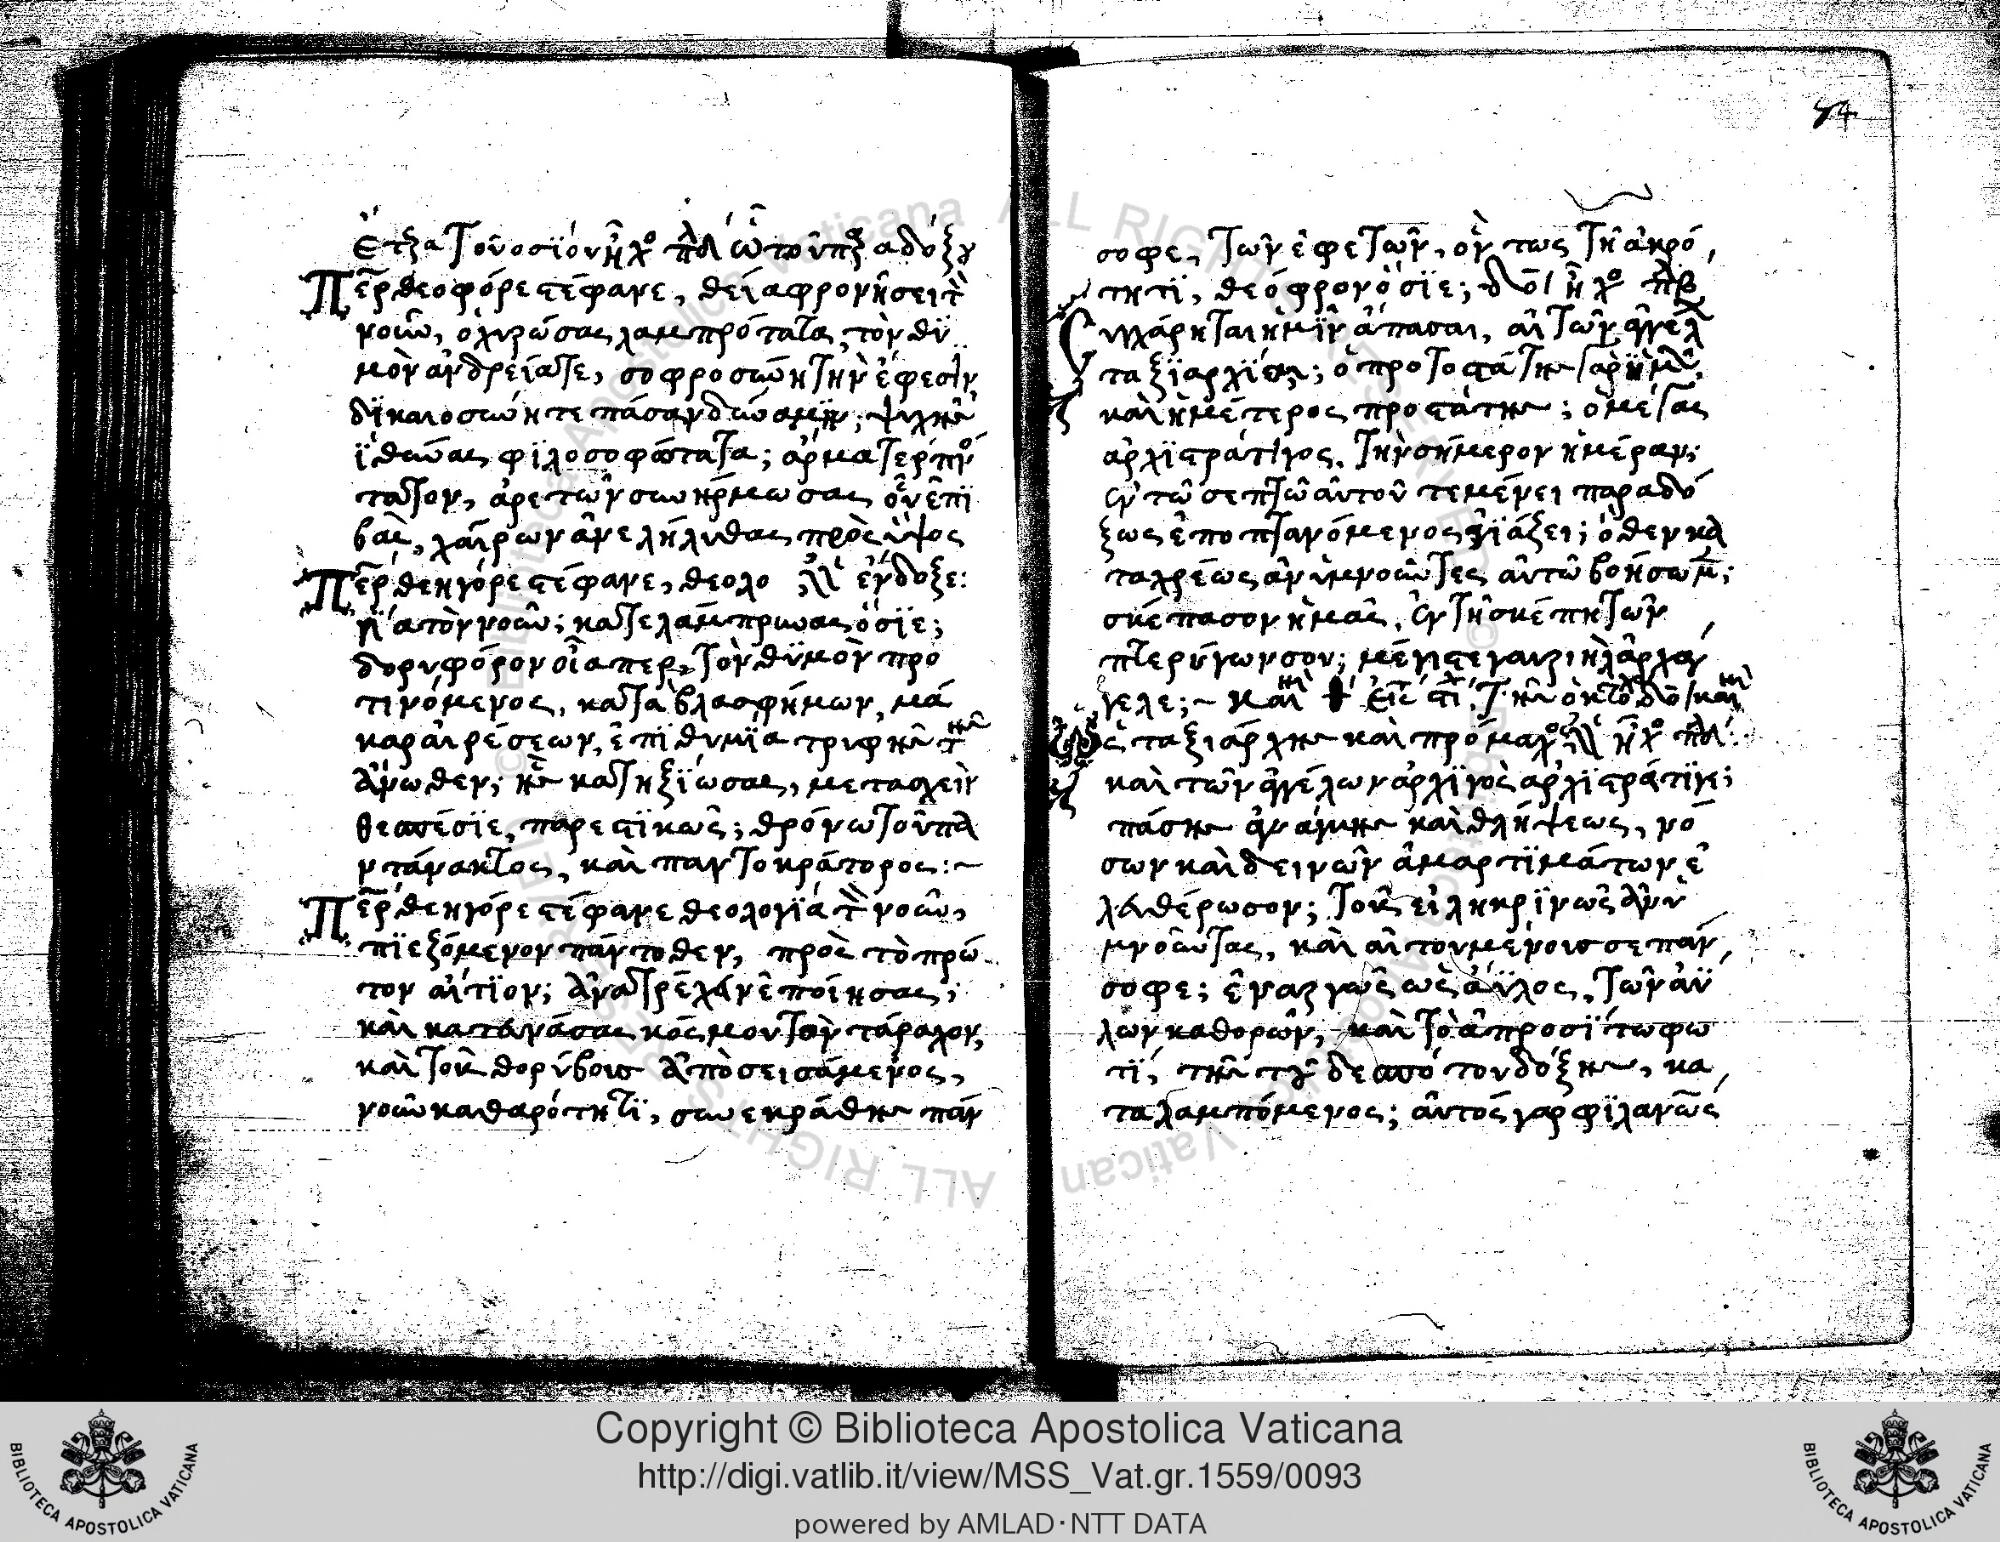 Ἕτερα τοῦ ὁσίου ἦχος πλ ὢ τοῦ παραδόξου
Πάτερ θεοφόρε στέφανε, θεία φρονήσει τὸν
νοῦν, ὀχυρώσας λαμπρότατα, τὸν θυ
μὸν ἀνδρείατε, σοφροσύνη τὴν ἔφεσιν
δϊκαιοσύνη τε πάσαν δύναμϊν; ψυχῆς
ϊθύνας φϊλοσοφώτατα; ἄρμα τερπνό
τατον, ἀρετῶν συνήρμωσας οὗ ἐπϊ
βὰς, χαίρων ἀνελήλυθας πρὸς ὕψος
Πάτερ θεηγόρε στέφανε, θεολο ἔνδοξε:
γϊα τὸν νοῦν; κατελάμπρυνας ὅσϊε;
δορυφόρον οἷα περ, τὸν θϋμὸν προ
τινόμενος, κατὰ βλασφήμων, μά
καρ αἱρέσεων, ἐπϊθυμϊα τρυφῆς τῆς
ἄνωθεν; ἧς κατηξϊώσας, μετασχεῖν
θεσπέσϊε, παρεστϊκὼς; θρόνω τοῦ πα
ντάνακτος, καὶ παντοκράτορος:~
Πάτερ θεηγόρε στέφανε θεολογϊα τὸν νοῦν,
πϊεζόμενον πάντοθεν, πρὸς τὸ πρῶ
τον αἴτϊον; ἀνατρέχειν ἐποίησας;
καὶ κατευνάσας κόσμου τὸν τάραχον,
καὶ τοὺς θορύβους ἀπὸσεισάμενος,
νοῦν καθαρότητϊ, συνεκράθης πάν
94
σοφε, τῶν ἐφετῶν, ὄντως τῆ ἀκρό,
τητϊ, θεόφρον ὅσϊε; δό ἦχος πλ β
Συγχάρηται ἡμῖν ἅπασαι, αἱ τῶν ἀγγέλων
ταξϊαρχϊαι; ὁ πρωτοστάτης
καὶ ἡμέτερος προστάτης; ὁ μέγας
ἀρχϊστράτηγος, τὴν σήμερον ἡμέραν;
ἐν τῶ σεπτῶ αὐτοῦ τεμένει παραδό
ξως ἐποπτανόμενος ἁγϊάζει; ὅθεν κα
ταχρέως ἀνυμνοῦντες αὐτῶ βοήσωμεν;
σκέπασον ἡμᾶς, ἐν τῆ σκέπη τῶν
πτερύγων σου; μέγιστε γαυριὴλ ἀρχάγ
γελε;~ Καὶ
ὁ ταξιάρχης καὶ πρόμαχος ἦχος πλ
καὶ τῶν ἀγγέλων ἀρχϊγὸς ἀρχϊστράτϊγε;
πάσης ἀνάγκης καὶ θλήψεως, νό
σων καὶ δεινῶν ἁμαρτϊμάτων ἐ
λευθέρωσον; τοὺς εἰληκρϊνῶς ἀνυ
μνοῦντας, καὶ αἰτουμένους σε πάν,
σοφε; ἐναργῶς ὡς ἄϋλος, τῶν ἀϋ
λων καθορῶν, καὶ τὸ ἀπροσϊτω φω
τί, τῆς τοῦ δεσπότου δόξης, κα,
ταλαμπόμενος; αὐτὸς γὰρ φϊλανῶς
Copyright © Biblioteca Apostolica Vaticana
http://digi.vatlib.it/view/MSS_Vat.gr.1559/0093
powered by AMLAD·NTT DATA
BIBLIOTECA APOSTOLICA VATICANA
BIBLIOTECA APOSTOLICA VATICANA